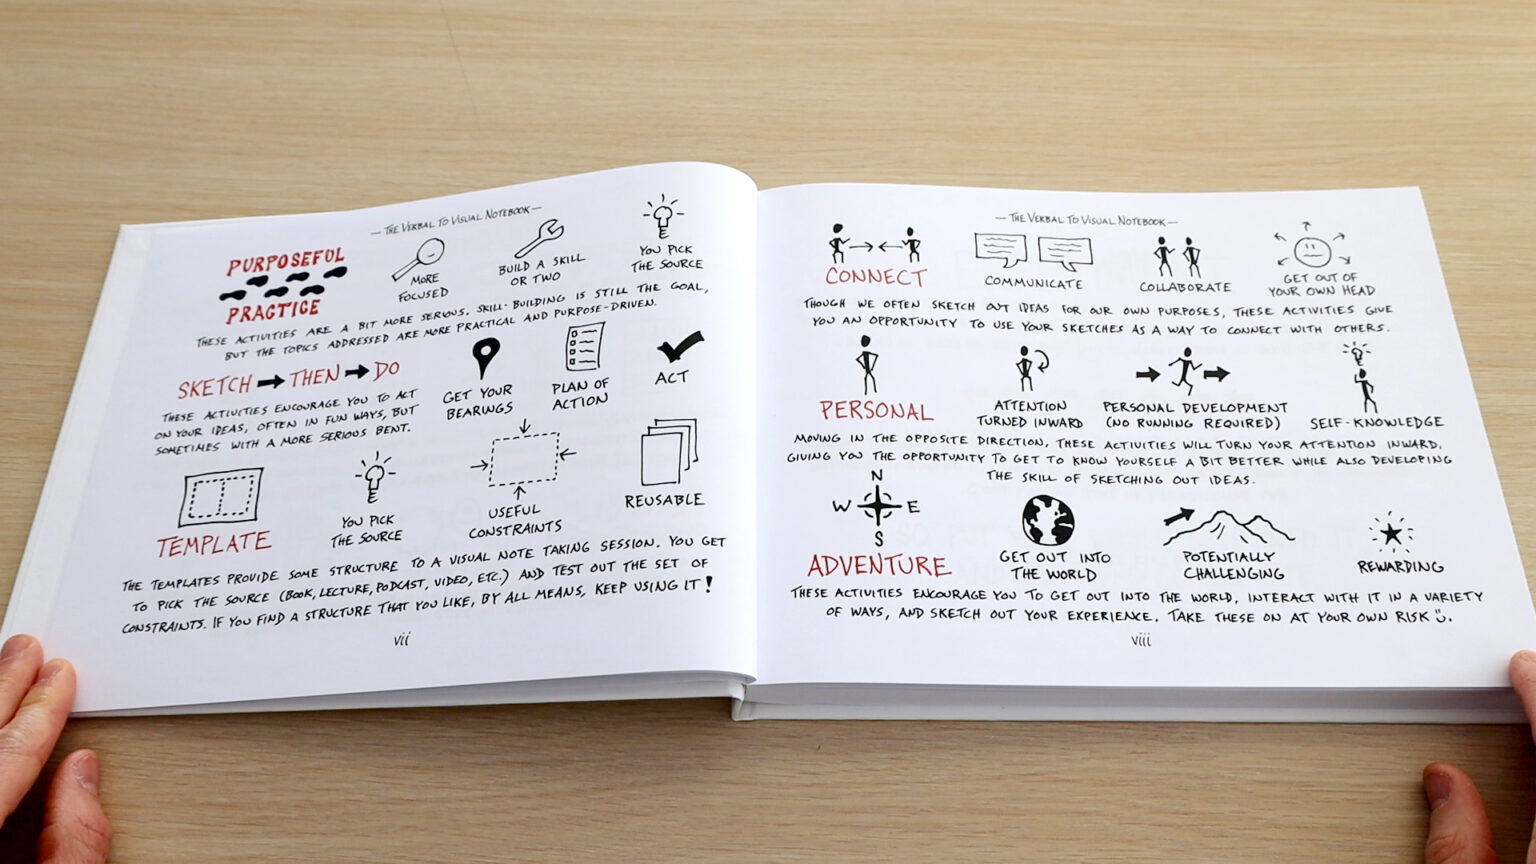 — THE VERBAL TO VISUAL NOTEBOOK —
PURPOSEFUL
PRACTICE
MORE
FOCUSED
BUILD A SKILL
OR TWO
YOU PICK
THE SOURCE
THESE ACTIVITIES ARE A BIT MORE SERIOUS. SKILL-BUILDING IS STILL THE GOAL,
BUT THE TOPICS ADDRESSED ARE MORE PRACTICAL AND PURPOSE-DRIVEN.
SKETCH THEN DO
THESE ACTIVITIES ENCOURAGE YOU TO ACT
ON YOUR IDEAS, OFTEN IN FUN WAYS, BUT
SOMETIMES WITH A MORE SERIOUS BENT.
GET YOUR
BEARINGS
PLAN OF
ACTION
ACT
TEMPLATE
YOU PICK
THE SOURCE
USEFUL
CONSTRAINTS
REUSABLE
THE TEMPLATES PROVIDE SOME STRUCTURE TO A VISUAL NOTE TAKING SESSION. YOU GET
TO PICK THE SOURCE (BOOK, LECTURE, PODCAST, VIDEO, ETC.) AND TEST OUT THE SET OF
CONSTRAINTS. IF YOU FIND A STRUCTURE THAT YOU LIKE, BY ALL MEANS, KEEP USING IT!
vii
— THE VERBAL TO VISUAL NOTEBOOK —
CONNECT
COMMUNICATE
COLLABORATE
GET OUT OF
YOUR OWN HEAD
THOUGH WE OFTEN SKETCH OUT IDEAS FOR OUR OWN PURPOSES, THESE ACTIVITIES GIVE
YOU AN OPPORTUNITY TO USE YOUR SKETCHES AS A WAY TO CONNECT WITH OTHERS.
PERSONAL
ATTENTION
TURNED INWARD
PERSONAL DEVELOPMENT
(NO RUNNING REQUIRED)
SELF-KNOWLEDGE
MOVING IN THE OPPOSITE DIRECTION, THESE ACTIVITIES WILL TURN YOUR ATTENTION INWARD,
GIVING YOU THE OPPORTUNITY TO GET TO KNOW YOURSELF A BIT BETTER WHILE ALSO DEVELOPING
THE SKILL OF SKETCHING OUT IDEAS.
N
W E
S
ADVENTURE
GET OUT INTO
THE WORLD
POTENTIALLY
CHALLENGING
REWARDING
THESE ACTIVITIES ENCOURAGE YOU TO GET OUT INTO THE WORLD, INTERACT WITH IT IN A VARIETY
OF WAYS, AND SKETCH OUT YOUR EXPERIENCE. TAKE THESE ON AT YOUR OWN RISK.
viii